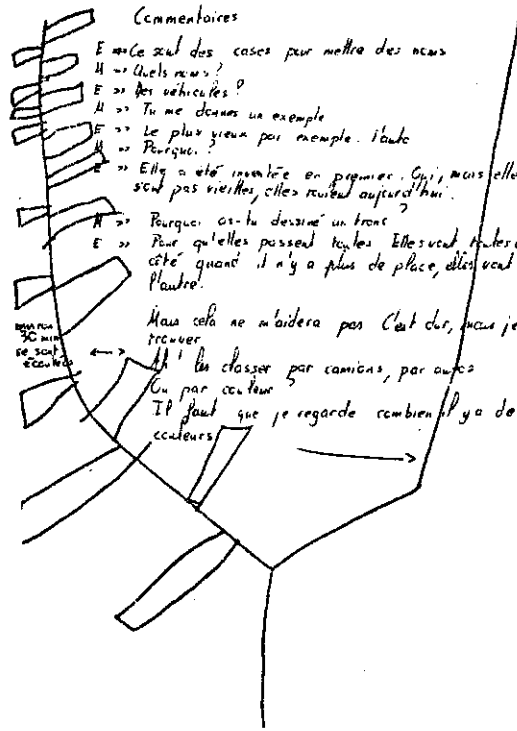 Commentaires
E => Ce sont des cases pour mettre des noms
M => Quels noms ?
E => Des véhicules ?
M => Tu me donnes un exemple
E => Le plus vieux par exemple. l'auto
M => Pourquoi ?
E => Elle a été inventée en premier. Oui, mais elle
sont pas vieilles, elles roulent aujourd'hui.
M => Pourquoi as-tu dessiné un tronc ?
E => Pour qu'elles passent toutes. Elles vont toutes
côté quand il n'y a plus de place, elles vont
l'autre.
Mais cela ne m'aidera pas C'est dur, mais je
trouver
Ah ! les classer par camions, par autos
Ou par couleur ?
Il faut que je regarde combien il y a de
couleurs
30 min
se sont
écoulées